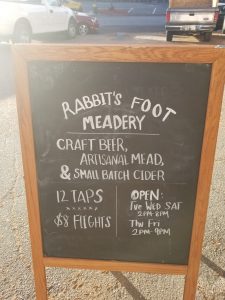 RABBIT'S FOOT
MEADERY
CRAFT BEER,
ARTISANAL MEAD,
& SMALL BATCH CIDER
12 TAPS
$8 FLIGHTS
OPEN:
Tue Wed SAT
2PM-8PM
Thu Fri
2PM-9PM